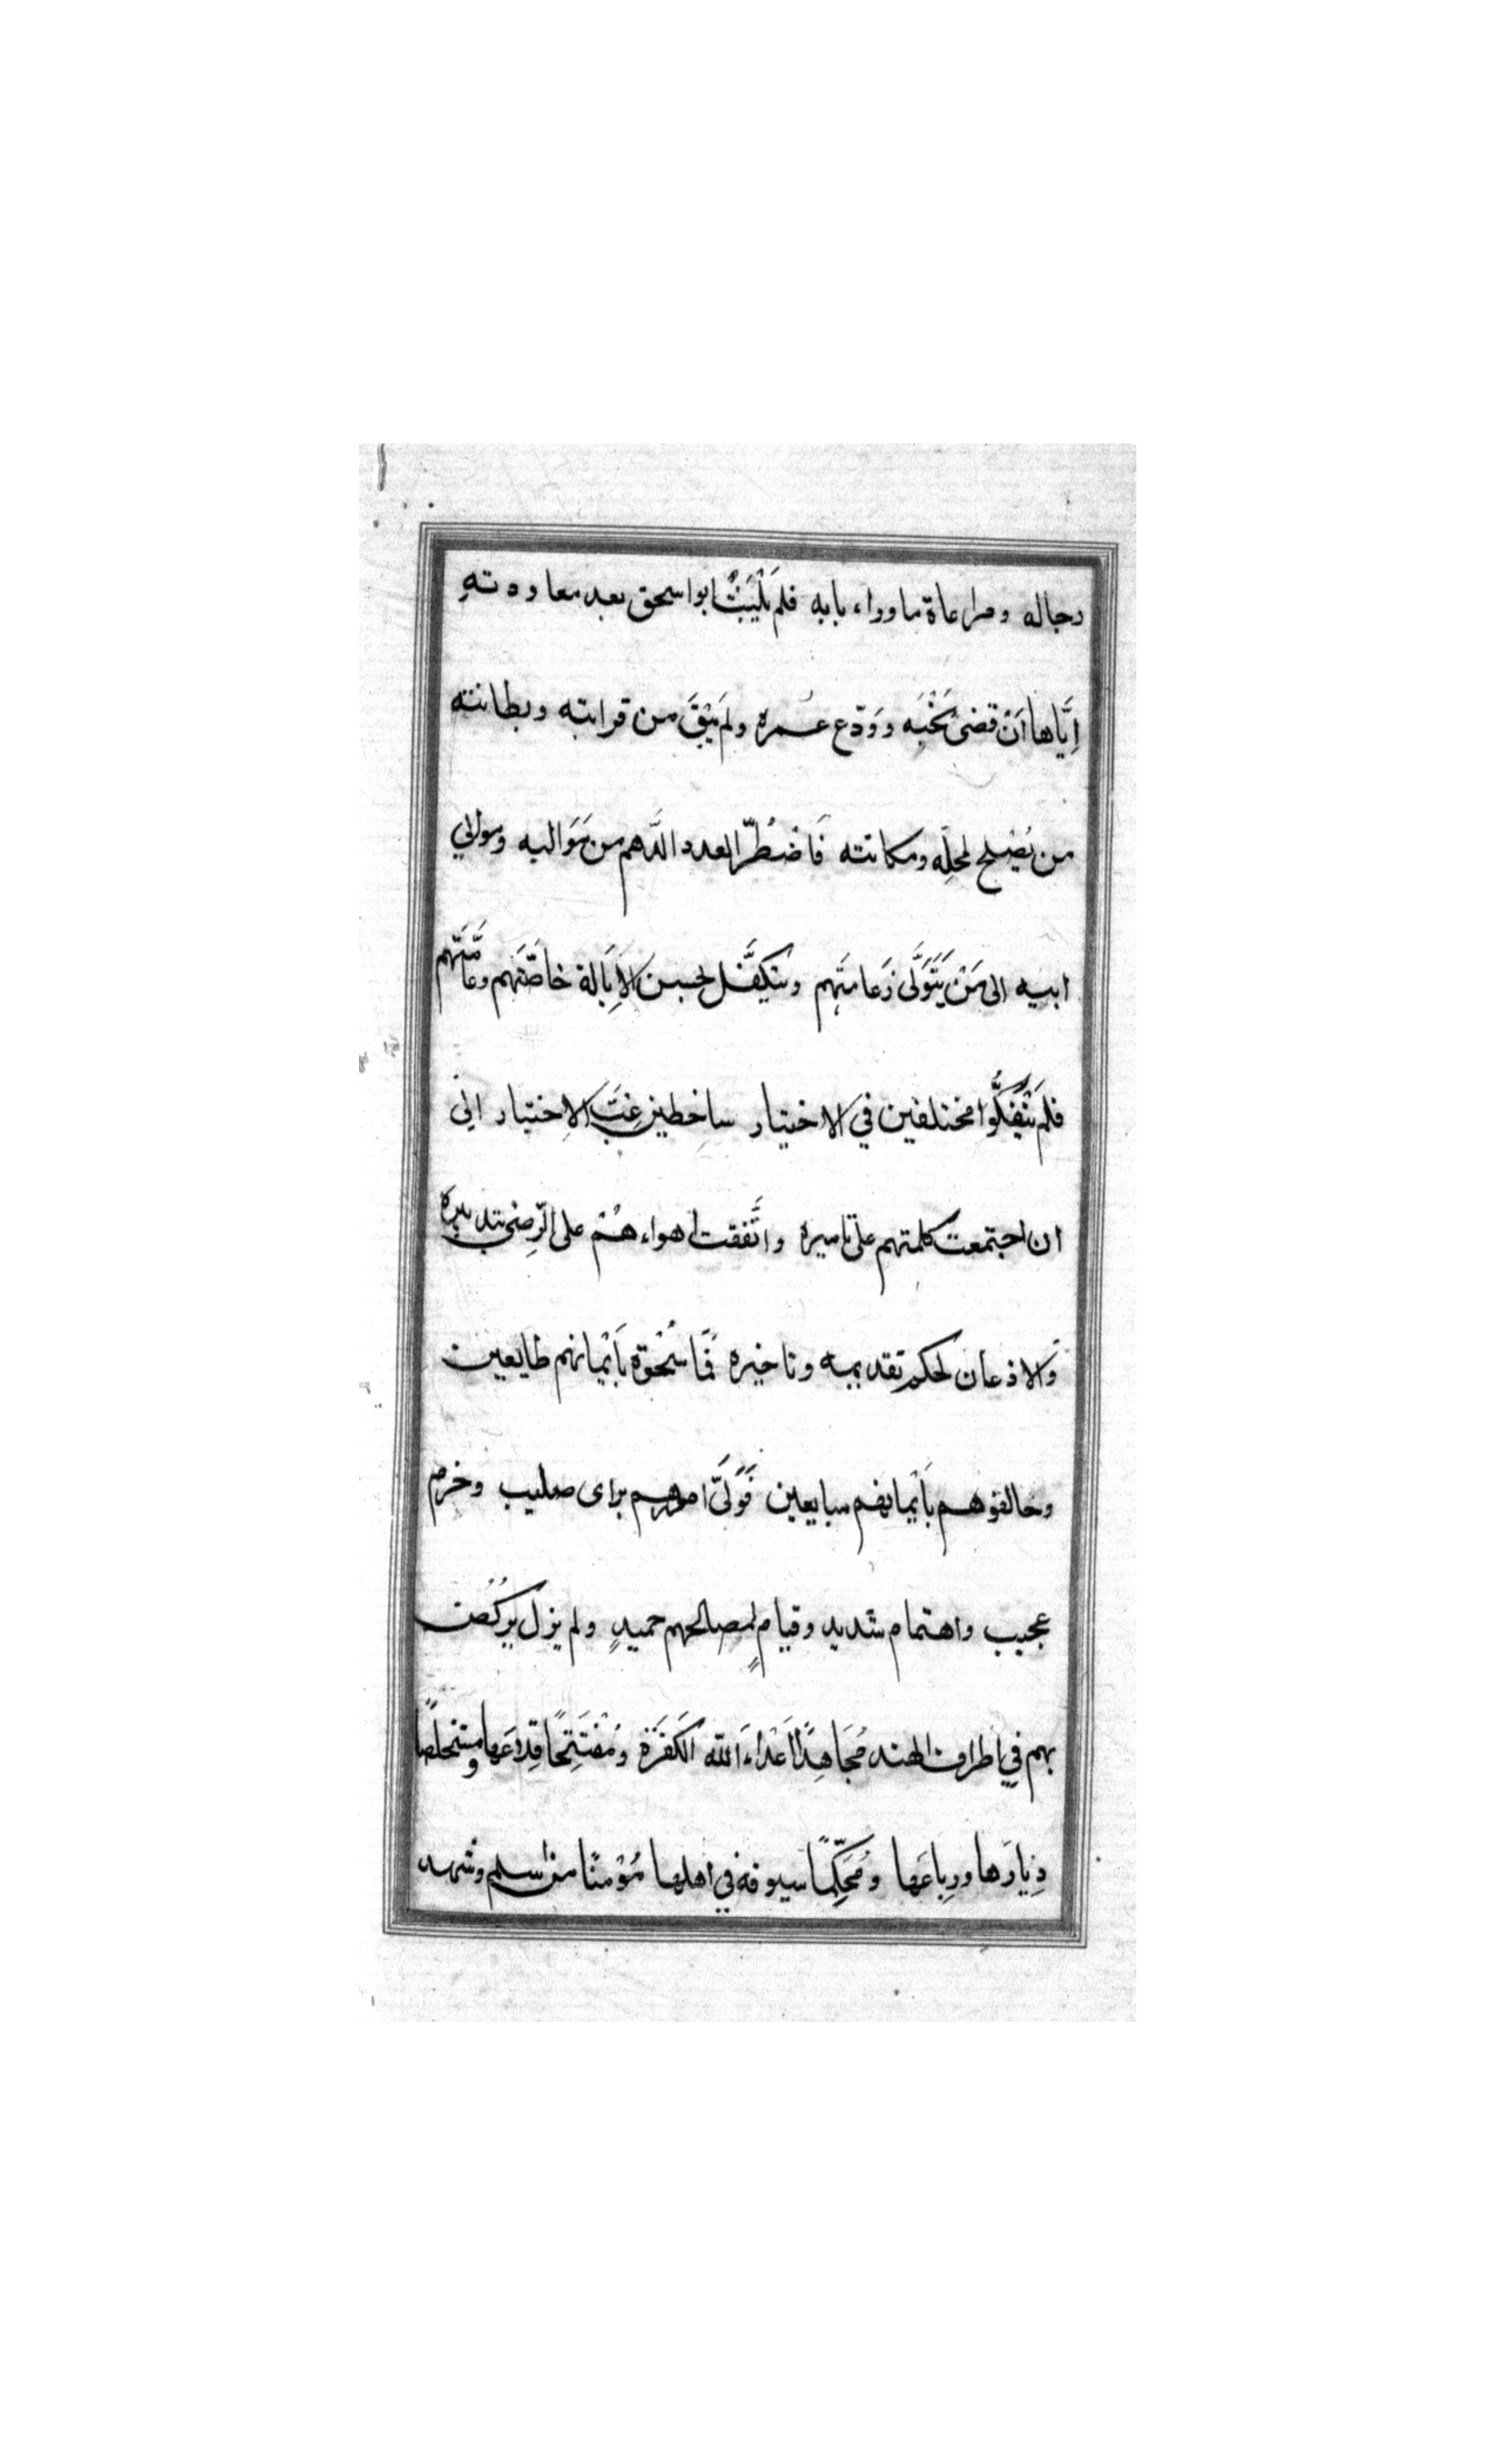 رجاله ومراعاة ماوراء بابه فلم يَلْبَثْ ابواسحق بعد معاودتهِ
اِيَّاها اَنْ قضى نَحْبَه وَوَدّع عمره ولم يَبْقَ من قرابته وبطانته
من يُصْلح لمحلِّه ومكانته فَاضْطُرَّ العدد الدَّهم من مَوَاليه وموالي
ابيه الى مَنْ يَتَوَلَّى زَعامتَهم ويتكفَّل لحسن الاِيَالة خاصّتَهم وعَامَّتَهم
فلم يَنْفَكُّوا مختلفين في الاختيار ساخطين غِبَّ الاِختبار الى
ان اجتمعت كلمتهم على تاميره واتَّفقت اهواءهُمْ على الرِّضى بتدبيره
وَالاذعان لحكم تقديمه وتاخيره فَمَاسَحُوْهُ بِاَيْمانهم طايعين
وحالفوهم بِاَيْمانهم مبايعين فَوَلىَّ امرهم براى صليب وحزم
عجيب واهتمام شديد وقيامٍ لمصالحهم حميدٍ ولم يزل يركُض
بهم في اطراف الهند مُجَاهِدًا اَعْدَاءَ الله الكَفَرَةَ ومُفْتَتِحًا قِلاَعَها ومستخلصًا
دِيارَها ورِباعَها ومُحَكِّمًا سيوفه في اهلها مُؤْمنًا من اسلم وشهد